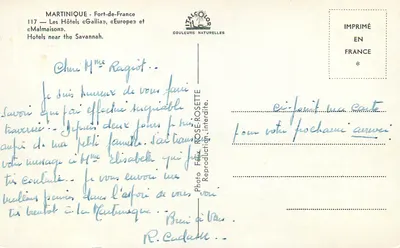 MARTINIQUE - Fort-de-France
117 — Les Hôtels «Gallia», «Europe» et
«Malmaison».
Hotels near the Savannah.
ITALCOLOR
COULEURS NATURELLES
IMPRIMÉ
EN
FRANCE
*
Photo ROSE-ROSETTE
Reproduction interdite.
Chère Mme
Je suis heureux de vous faire
savoir que j'ai effectué
traversée. Depuis deux jours je suis
de ma petite famille. J'ai transmis
votre message à Mme Elisabelle qui fut
très contente. Je vous envoie mes
meilleures pensées dans l'espoir de vous voir
très bientôt à la Martinique.
Bien à Vous
R.
ci-joint une carte
pour votre prochaine